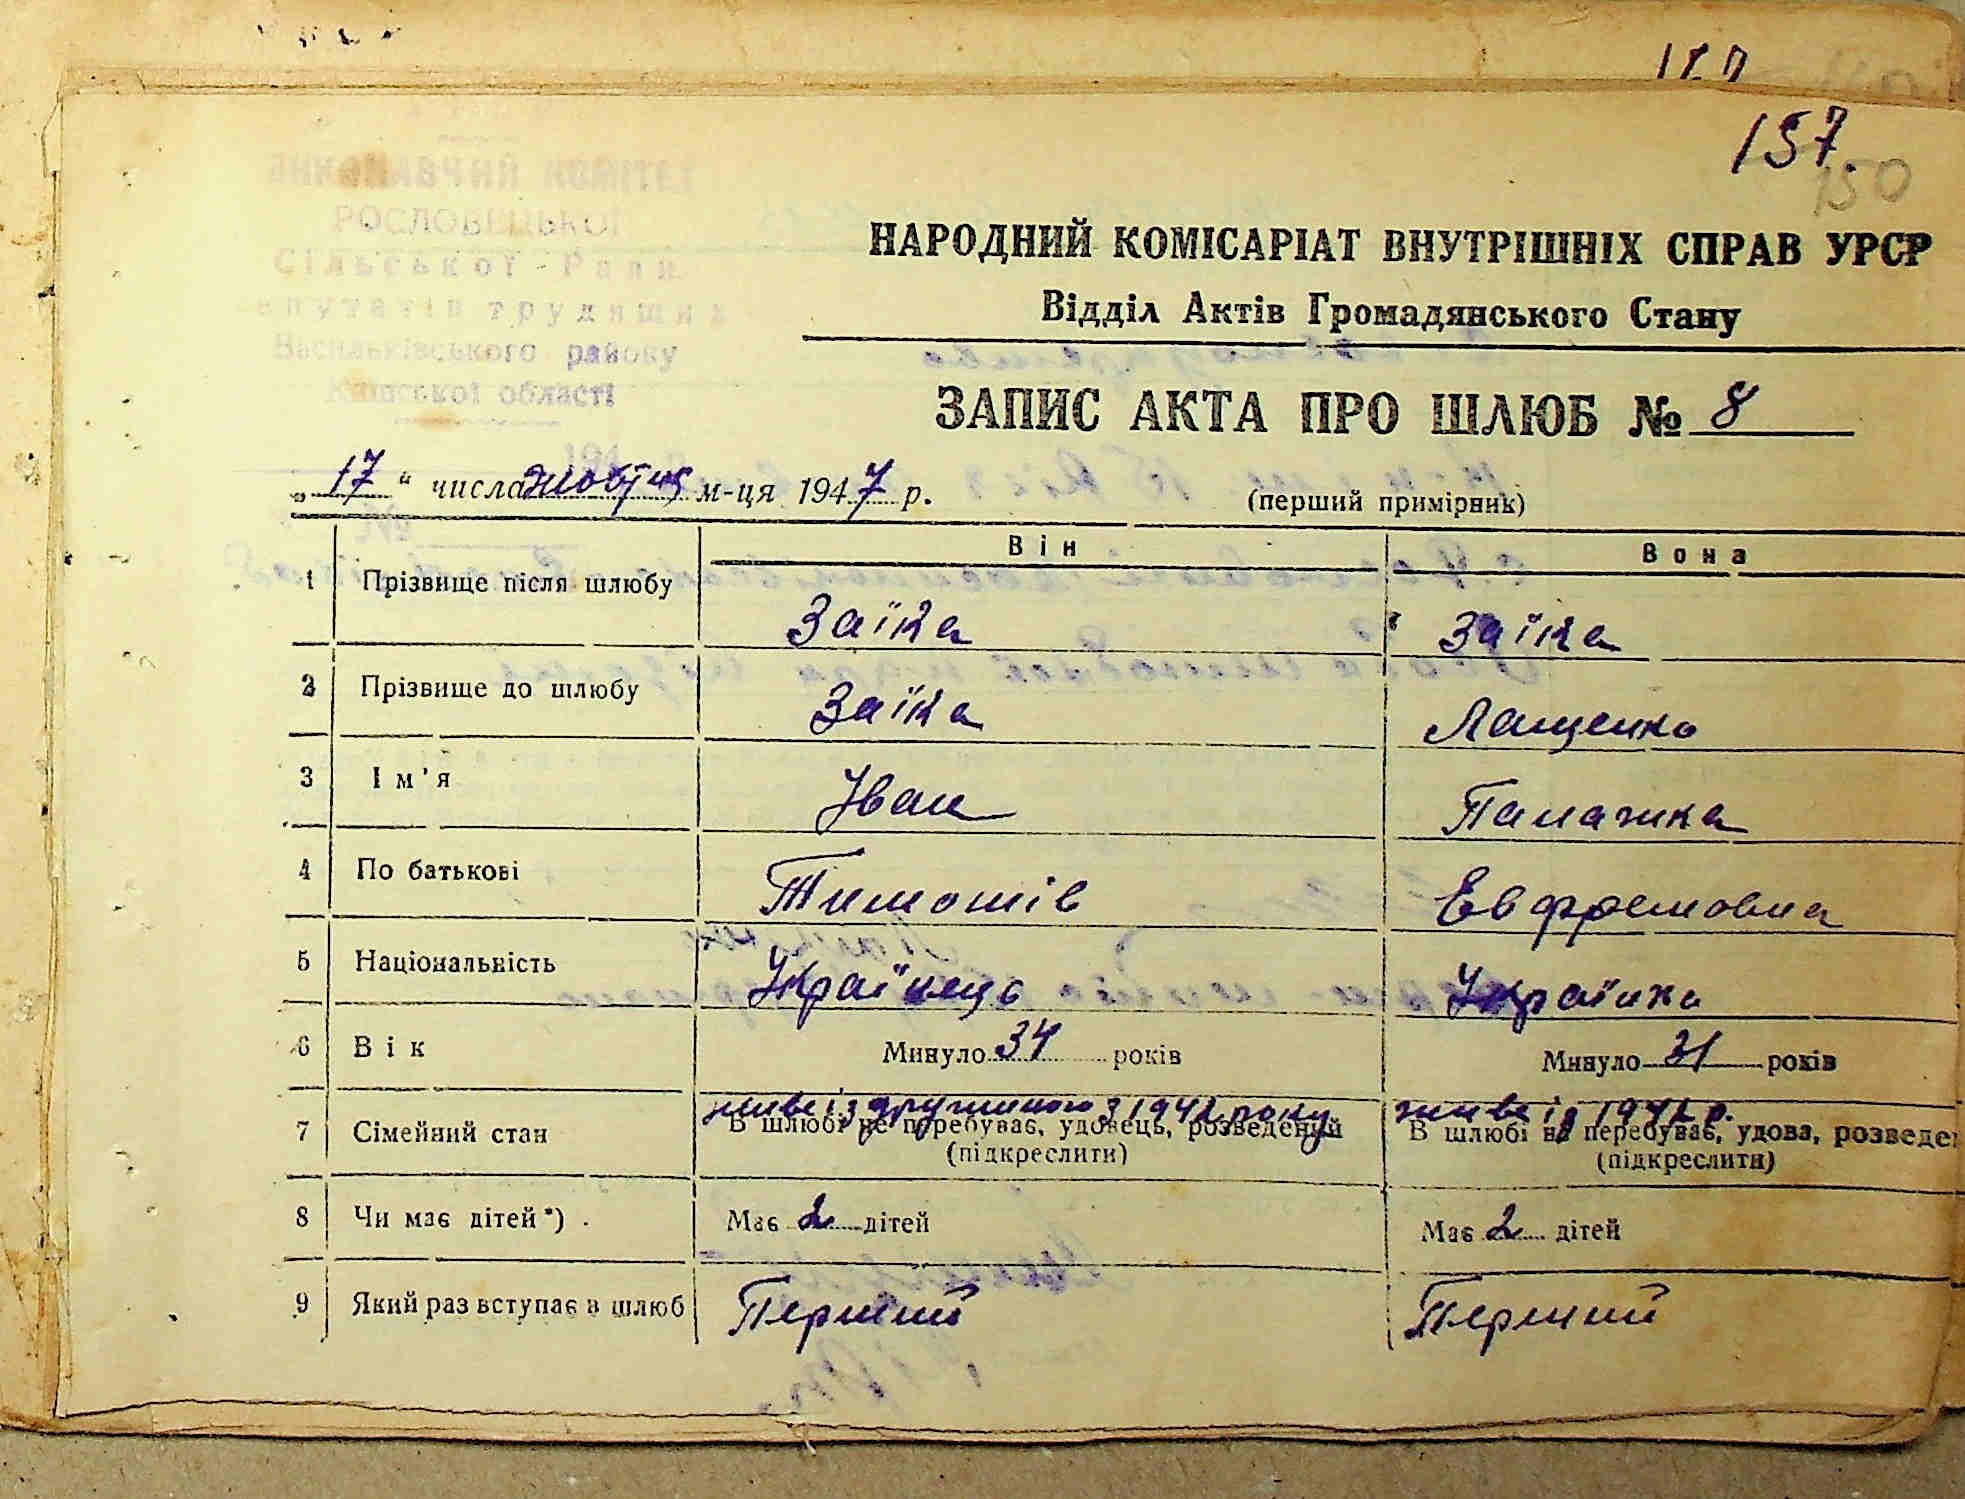 157.
150
ВИКОНАВЧИЙ КОМІТЕТ
РОСЛОВЕЦЬКОЇ
Сільської Ради
депутатів трудящих
Васильківського району
Київської області
НАРОДНИЙ КОМІСАРІАТ ВНУТРІШНІХ СПРАВ УРСР
Відділ Актів Громадянського Стану
ЗАПИС АКТА ПРО ШЛЮБ № 8
„17“ числа жовтня м-ця 1947 р. (перший примірник)
Він Вона
1 Прізвище після шлюбу Заїка Заїка
2 Прізвище до шлюбу Заїка Лащенко
3 Ім’я Іван Палажка
4 По батькові Тимошів Евфремовна
5 Національність Українець Українка
6 Вік Минуло 34 років Минуло 31 років
живе із дружиною з 1942 року живе із 1942 р.
7 Сімейний стан В шлюбі не перебуває, удовець, розведений В шлюбі не перебуває, удова, розведе
(підкреслити) (підкреслити)
8 Чи має дітей*) Має 2 дітей Має 2 дітей
9 Який раз вступає в шлюб Перший Перший